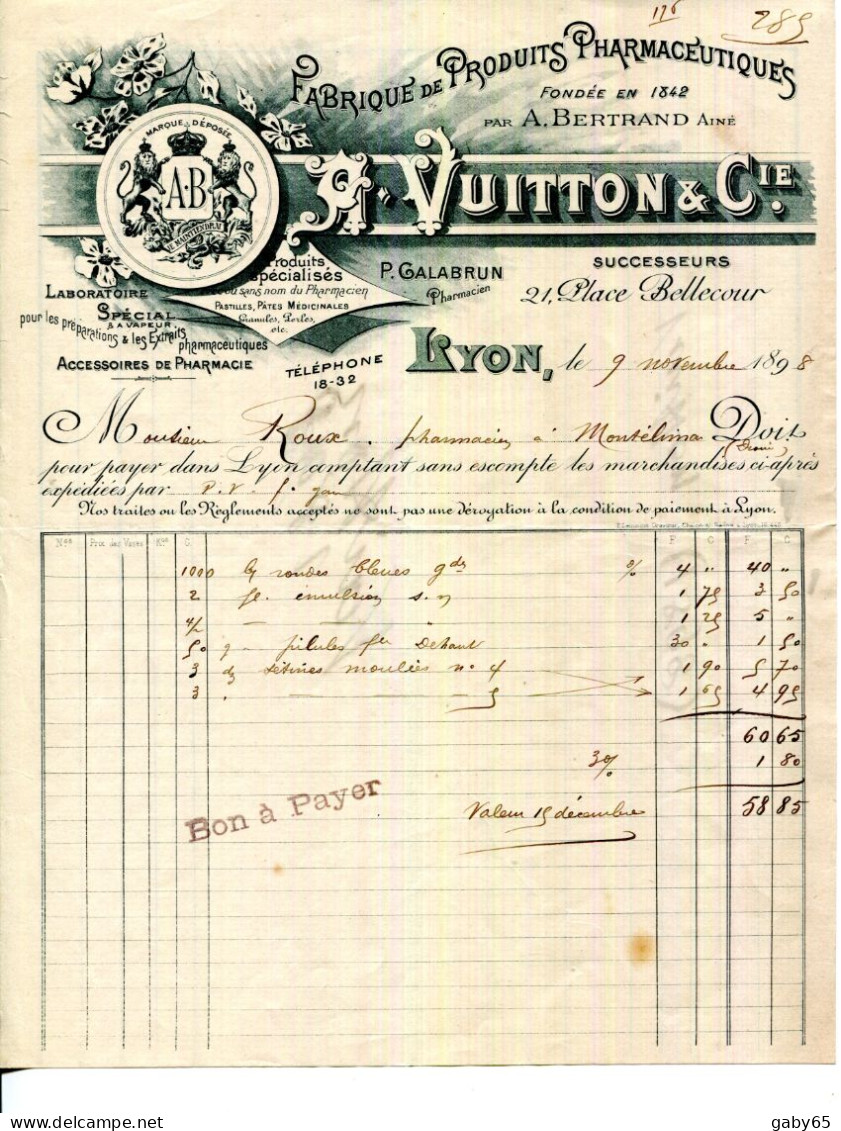 176
285
FABRIQUE DE PRODUITS PHARMACEUTIQUES
FONDÉE EN 1842
PAR A. BERTRAND AINÉ
MARQUE DÉPOSÉE
A·B
JE MAINTIENDRAI
A. VUITTON & CIE.
SUCCESSEURS
P. GALABRUN
Pharmacien
21, Place Bellecour
Produits
spécialisés
avec ou sans nom du Pharmacien
PASTILLES, PÂTES MÉDICINALES
Granules, Perles,
etc.
LABORATOIRE
SPÉCIAL
À VAPEUR
pour les préparations & les Extraits pharmaceutiques
ACCESSOIRES DE PHARMACIE
TÉLÉPHONE
18-32
LYON, le 9 novembre 1898
Monsieur Roux, pharmacien à Montélimar Doit
pour payer dans Lyon comptant sans escompte les marchandises ci-après
expédiées par P. V.
Nos traites ou les Règlements acceptés ne sont pas une dérogation à la condition de paiement à Lyon.
Nos Prix des Vases Kos G. F. C. F. C.
1000 rondes bleues gdes % 4 " 40 "
2 fl. émulsion 1 75 3 50
4/2 — — " 1 25 5 "
50 g pilules Dehaut 30 " 1 50
3 dz tétines moulées no 4 1 90 5 70
3 " — 5 1 65 4 95
60 65
3% 1 80
Valeur 15 décembre 58 85
Bon à Payer
gaby65